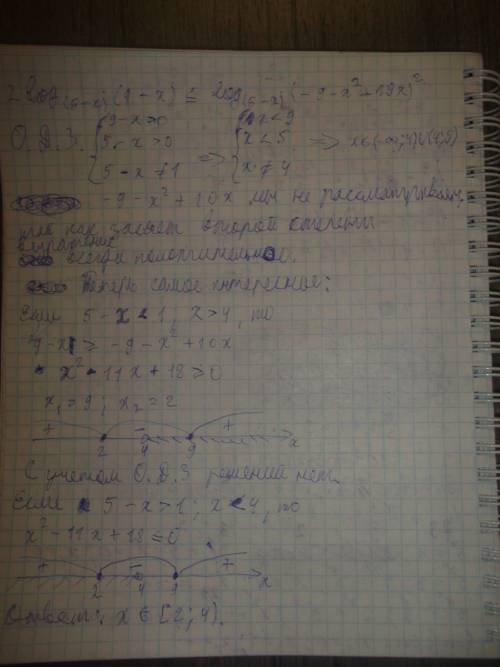 2 log₍₅₋ₓ₎ (9-x) ≤ log₍₅₋ₓ₎ (-9-x²+10x)²
О.Д.З. { 9-x>0 { x<9
5-x>0 => { x<5 => x∈(-∞;4)∪(4;5)
5-x≠1 { x≠4
-9-x²+10x мы не рассматриваем,
так как второй степени
выражение всегда
Теперь самое интересное:
Если 5-x<1; x>4, то
9-x ≥ -9-x²+10x
x²-11x+18≥0
x₁=9; x₂=2
+ - +
2 4 9 x
С учётом О.Д.З решений нет.
Если 5-x>1; x<4, то
x²-11x+18≤0
+ - +
2 4 9 x
Ответ: x∈[2;4).